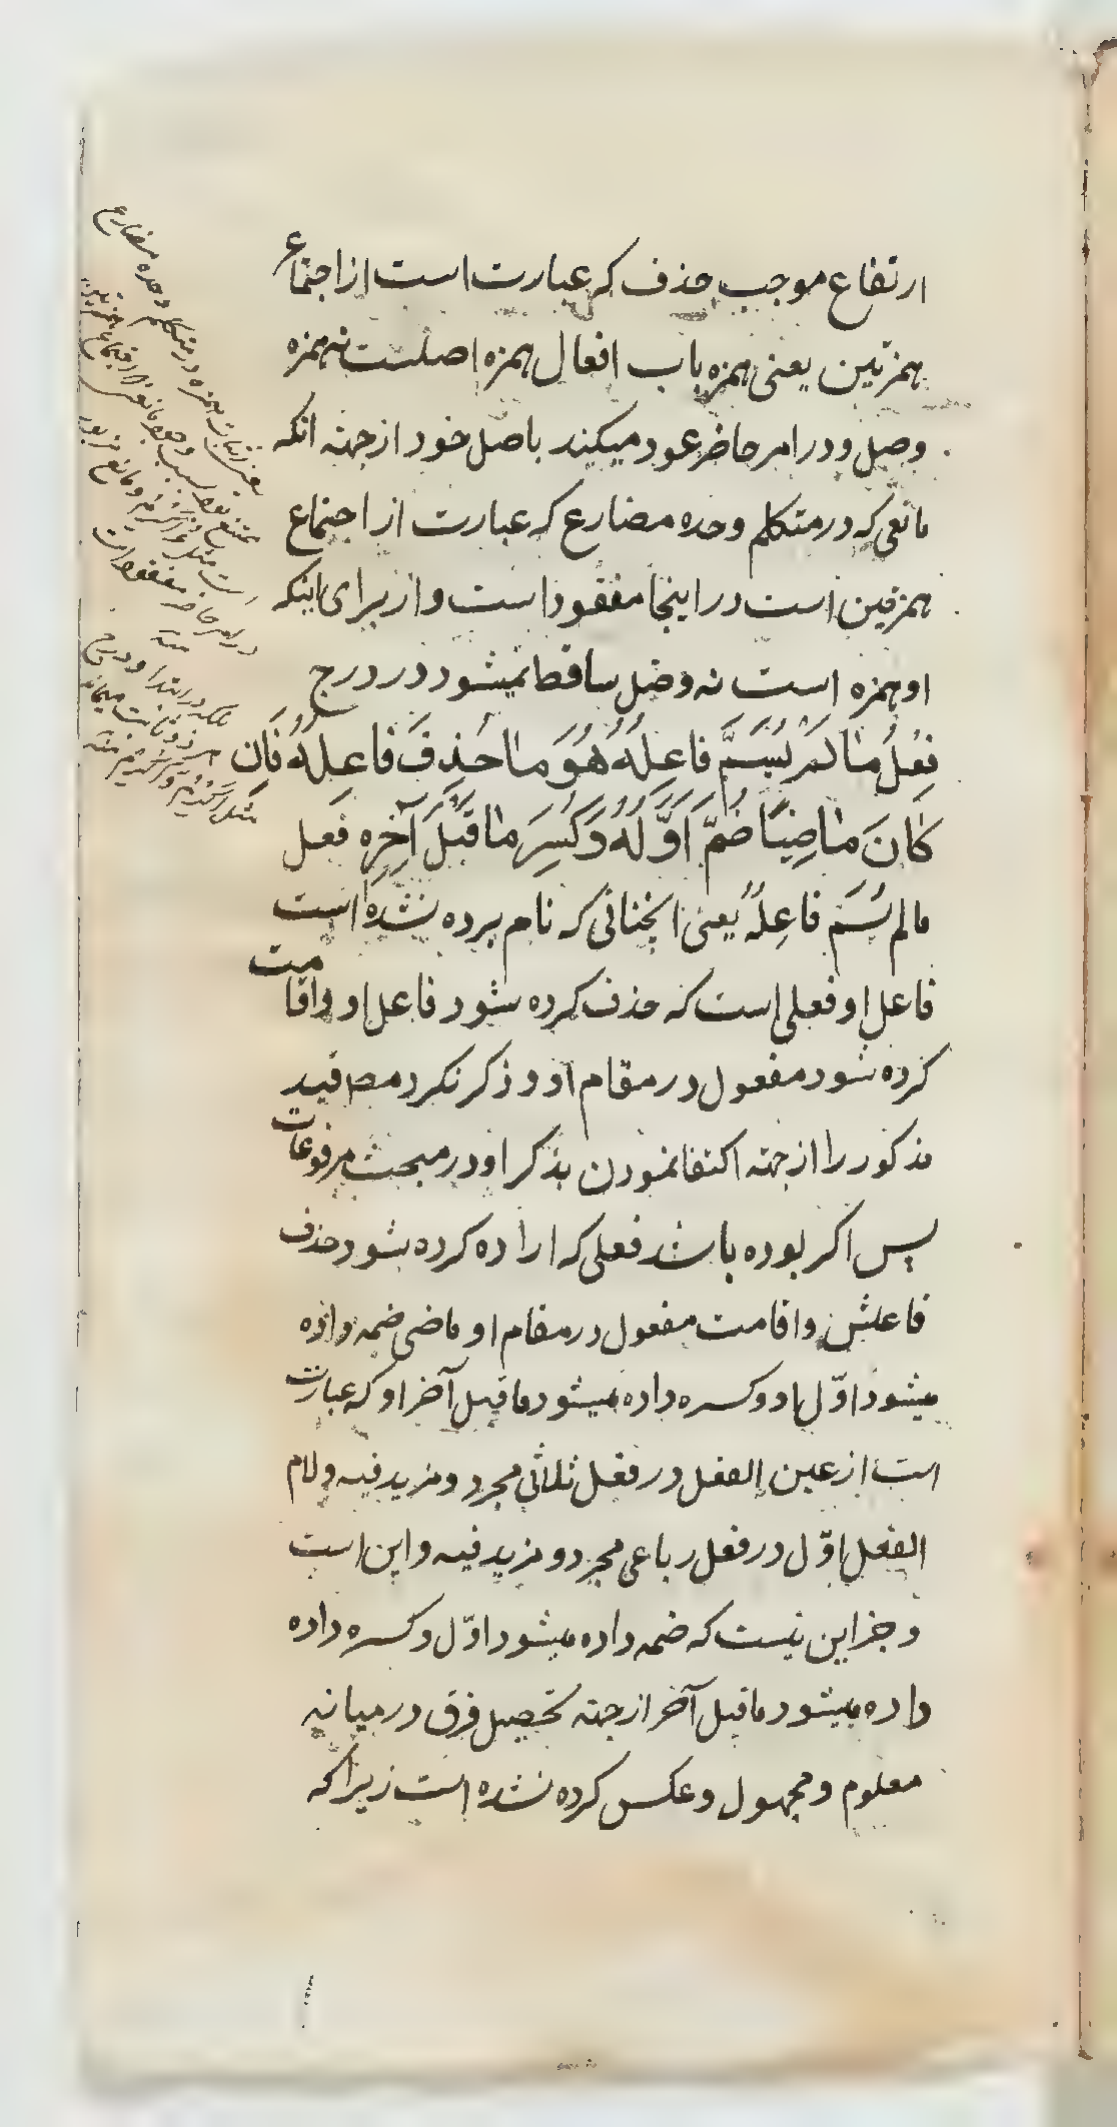 ارتفاع موجب حذف که عبارت است از اجتماع
همزتین یعنی همزه باب افعال همزه اصلست نه همزه
وصل و در امر حاضر عود میکند باصل خود از جهته انکه
مانعی که در متکلم وحده مضارع که عبارت از اجتماع
همزتین است در اینجا مفقود است و از برای اینکه
او همزه است نه وصل ساقط نمیشود در درج
فِعْلُ مَا لَمْ یُسَمَّ فاعِلُهُ هُوَ ما حُذِفَ فاعِلُهُ فَاِن
کانَ ماضِیًا ضُمَّ اَوَّلُهُ وَکُسِرَ ما قَبْلَ آخِرِه فعل
مالم یُسَمَّ فاعِلُهُ یعنی انچنانی که نام برده نشده است
فاعل او فعلی است که حذف کرده شود فاعل او و اقامت
کرده شود مفعول در مقام او و ذکر نکرد مص قید
مذکور را از جهته اکتفا نمودن بذکر او در مبحث مرفوعات
پس اکر بوده باشد فعلی که اراده کرده بشود حذف
فاعلش و اقامت مفعول در مقام او ماضی ضمه داده
میشود اوّل او و کسره داده میشود ماقبل آخر او که عبارت
است از عین الفعل در فعل ثلاثی مجرد و مزید فیه و لام
الفعل اوّل در فعل رباعی مجرد و مزید فیه و این است
و جز این نیست که ضمه داده میشود اوّل و کسره داده
داده میشود ماقبل آخر از جهته تحصیل فرق در میانه
معلوم و مجهول و عکس کرده نشده است زیرا که